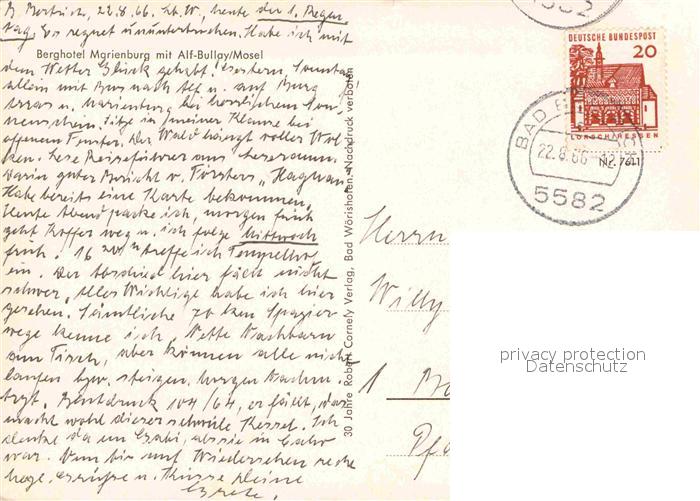 B. Bertrich, 22.8.66. Lb. W., heute der 1. Regen-
tag. Es regnet ununterbrochen. Habe ich mit
Berghotel Marienburg mit Alf-Bullay/Mosel
dem Wetter Glück gehabt! Gestern, Sonntag
allein mit Bus nach Alf u. auf Burg
u. Marienburg bei herrlichem Son-
nenschein. Sitze in meiner Klause bei
offenem Fenster. Der Wald hängt voller Wol-
ken. Lese Reiseführer aus
Darin guter Bericht v.
Habe bereits eine Karte bekommen.
Heute Abend packe ich, morgen früh
geht Koffer weg u. ich folge Mittwoch
früh. 16 20 treffe ich Tempelhof
ein. Der Abschied hier fällt nicht
schwer, alles Wichtige habe ich hier
gesehen. Sämtliche 70 km Spazier-
wege kenne ich. Nette Nachbarn
am Tisch, aber können alle nicht
laufen bzw. steigen. Morgen Nachm.
Arzt. Blutdruck 104/64, er fällt, das
macht wohl dieser schwüle Kessel. Ich
denke da an Gabi, als sie in
war. Nun bis auf Wiedersehen recht
Grüsse u. Küsse Deine
Grete.
30 Jahre Robert Cornely Verlag, Bad Wörishofen, Nachdruck verboten
5582
DEUTSCHE BUNDESPOST
20
LORSCH/HESSEN
Nr. 7611
BAD
22.8.66
5582
Herrn
Willy
1
privacy protection
Datenschutz